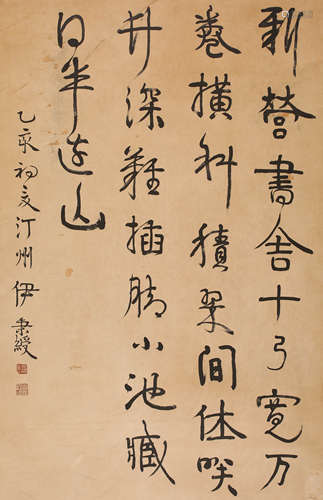 新營書舍十弓寬万
卷橫斜積翠間休咲
井深難插腳小池藏
日半边山
乙亥初夏汀州伊秉綬